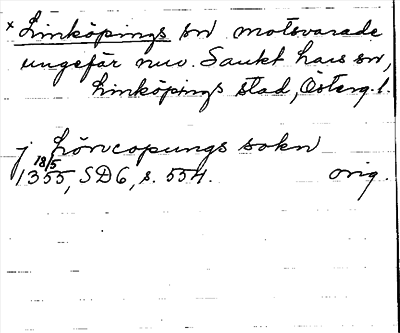 × Linköpings sn motsvarade
ungefär nuv. Sankt Lars sn,
Linköpings stad, Österg. l.
j Löncopungs sokn
18/5
1355, SD6, s. 554. orig.